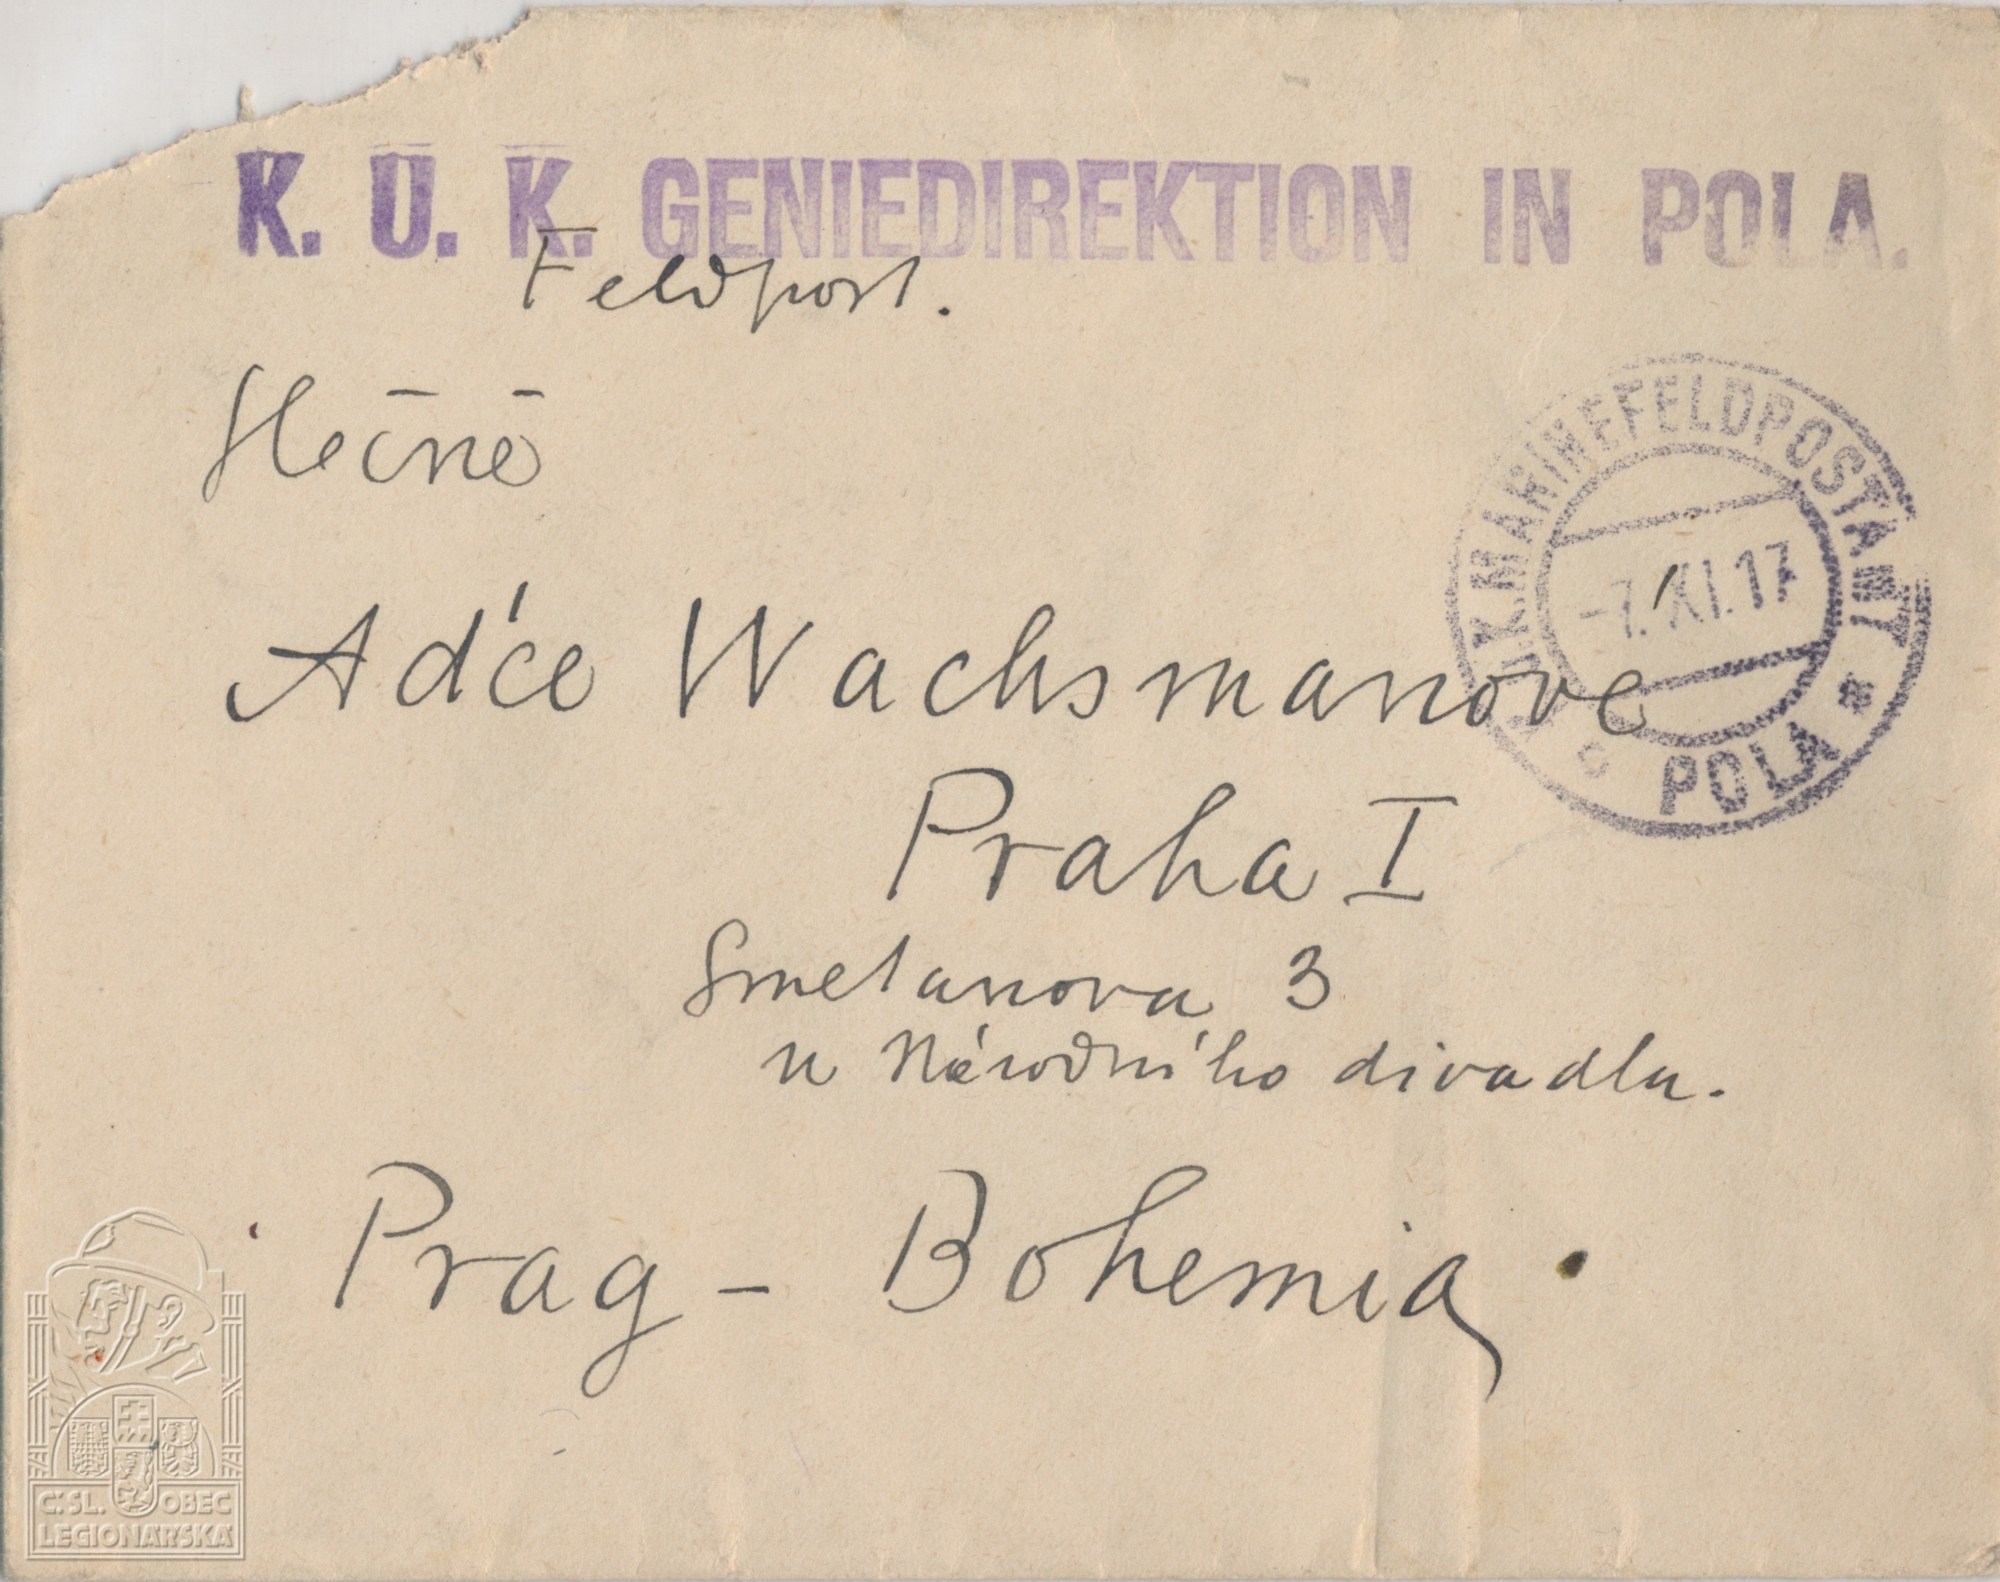 K. U. K. GENIEDIREKTION IN POLA.
Feldpost.
Slečně
Aďce Wachsmanove
Praha I
Smetanova 3
u Národního divadla.
Prag - Bohemia
K.MARINEFELDPOSTAMT
-7.XI.17
* POLA
Č.SL. OBEC
LEGIONÁŘSKÁ